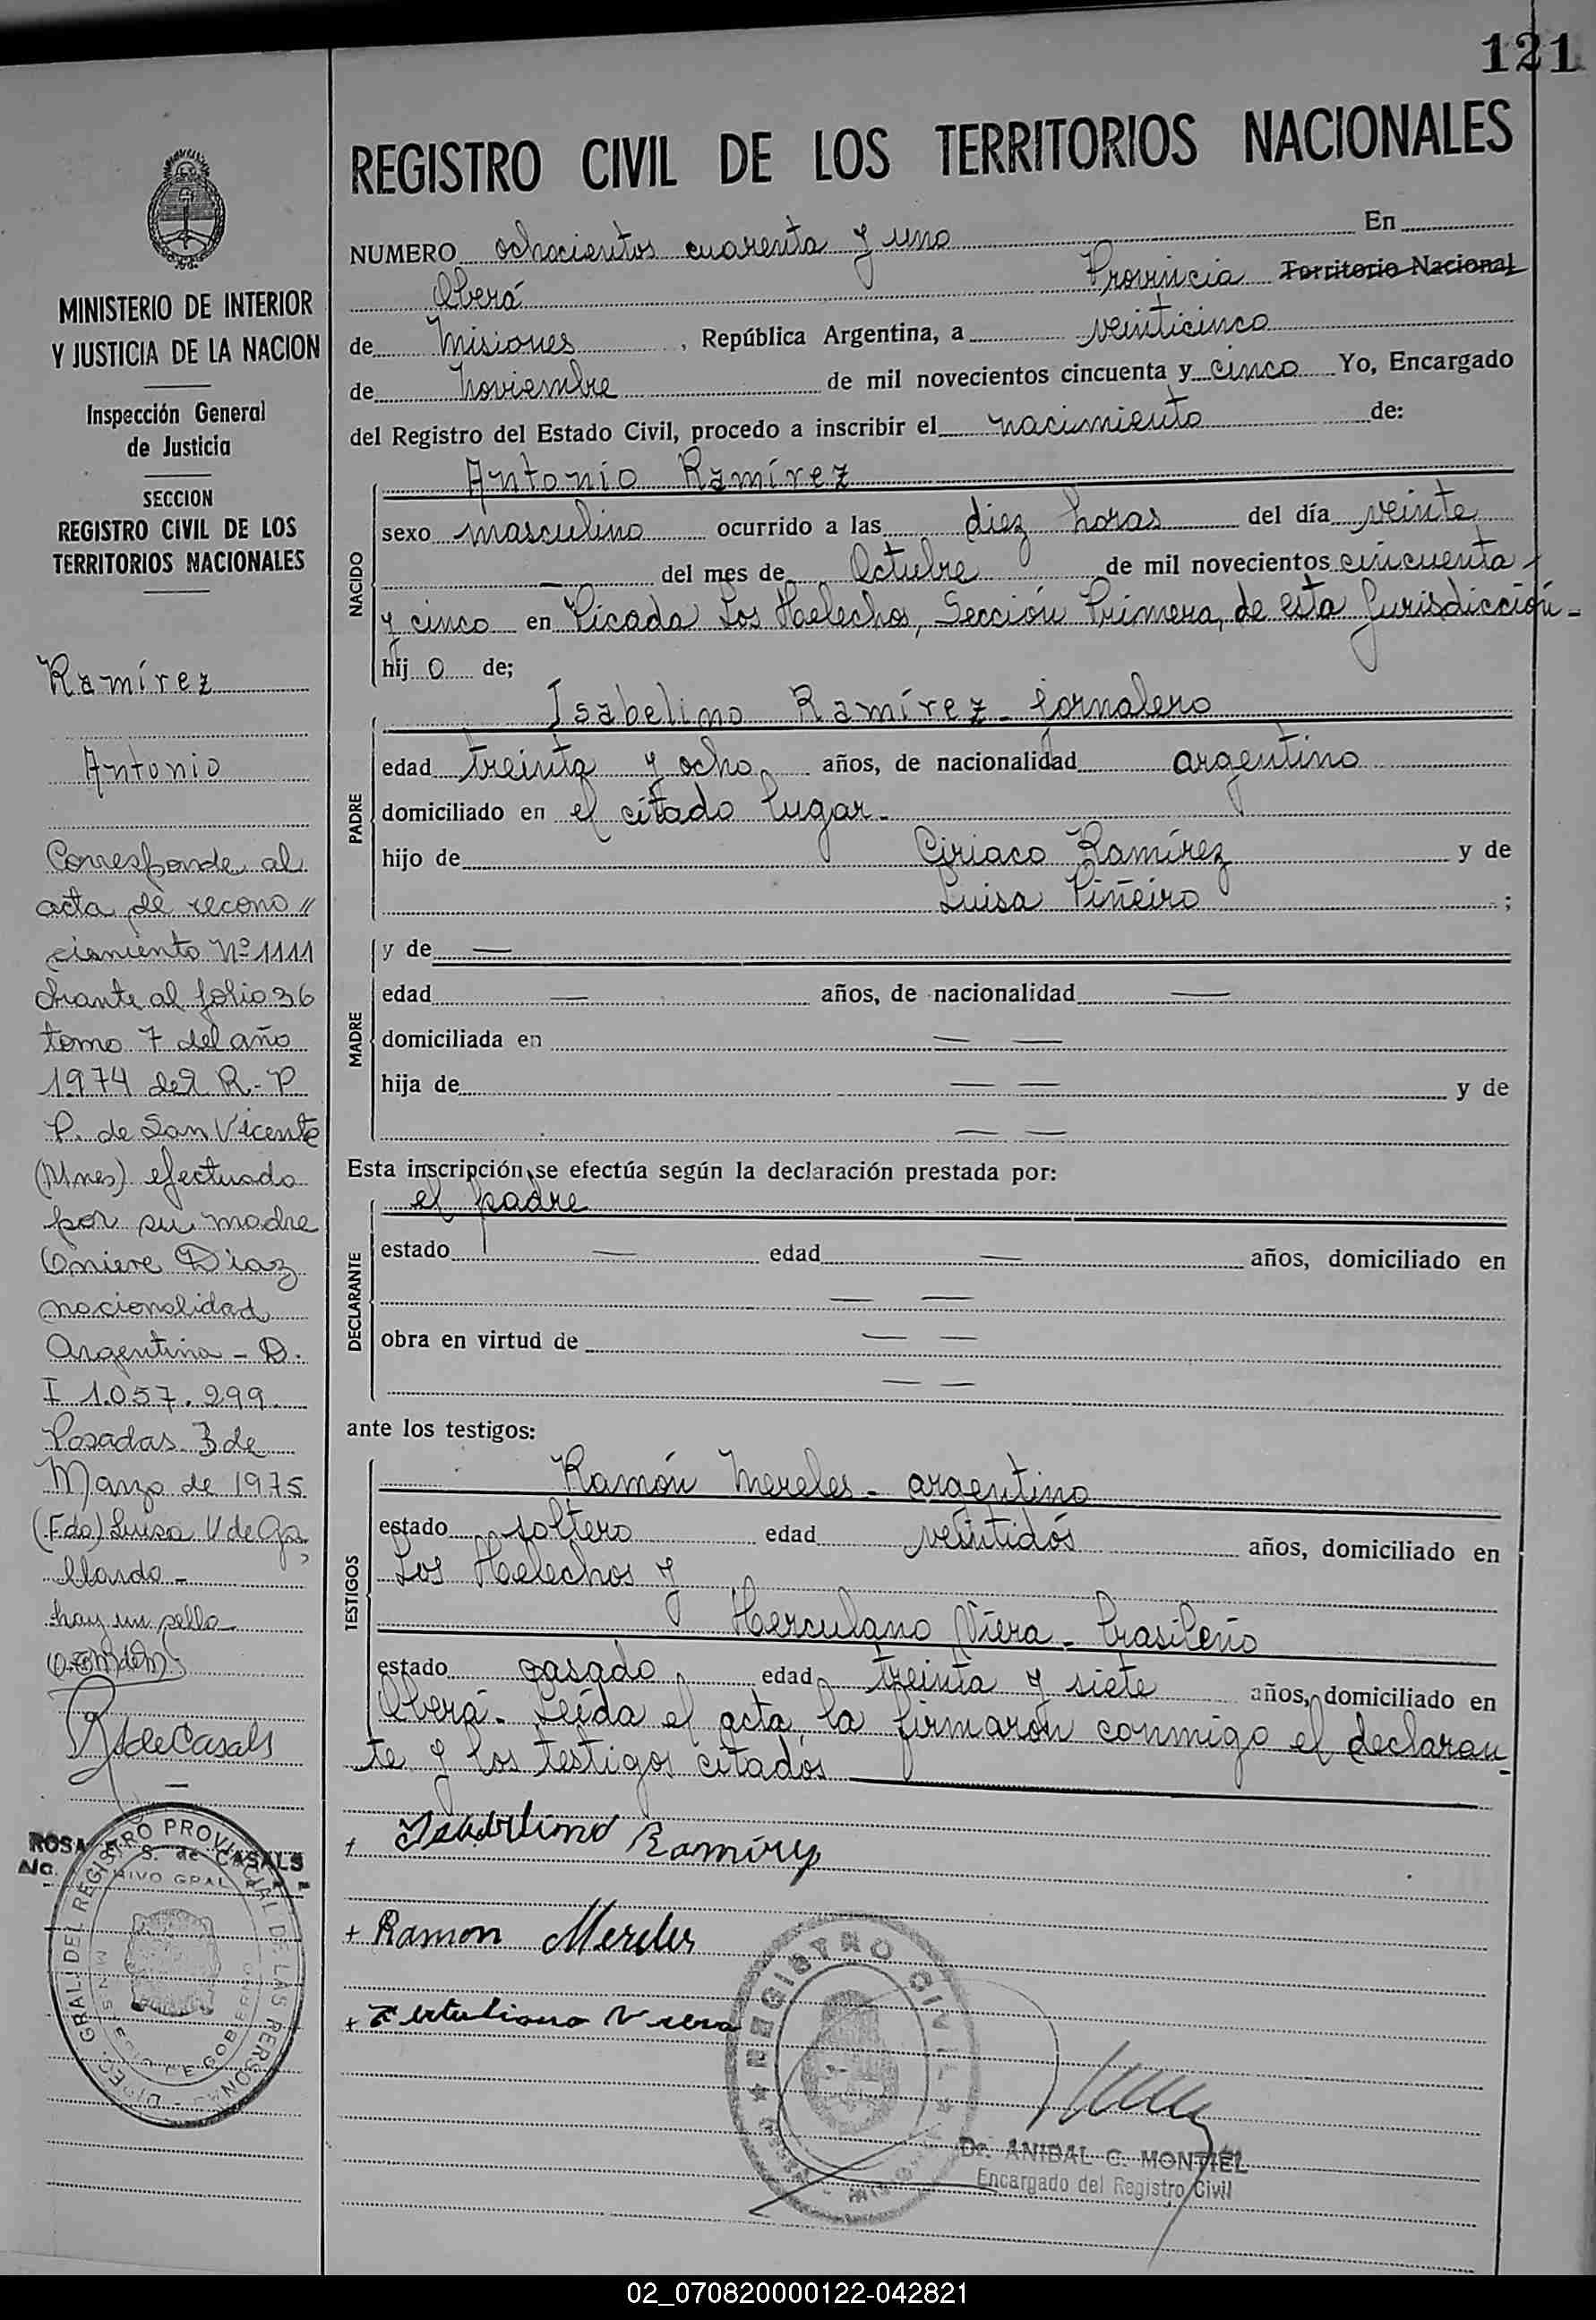 121
REGISTRO CIVIL DE LOS TERRITORIOS NACIONALES
MINISTERIO DE INTERIOR
Y JUSTICIA DE LA NACION
Inspección General
de Justicia
SECCION
REGISTRO CIVIL DE LOS
TERRITORIOS NACIONALES
Ramírez
Antonio
Corresponde al
acta de recono //
cimiento Nº 1111
obrante al folio 36
tomo 7 del año
1974 del R.P.
P. de San Vicente
(Mnes) efectuado
por su madre
Oniere Diaz
nacionalidad
Argentina - D.
I 1.057.299.
Posadas 3 de
Marzo de 1975
(Fdo) Luisa V de Ga
llardo -
hay un sello
RSdeCasals
ROSA S. de CASALS
DIREC. GRAL. DEL REGISTRO PROVINCIAL DE LAS PERSONAS
NUMERO ochocientos cuarenta y uno En
Oberá Provincia Territorio Nacional
de Misiones, República Argentina, a veinticinco
de Noviembre de mil novecientos cincuenta y cinco Yo, Encargado
del Registro del Estado Civil, procedo a inscribir el nacimiento de:
NACIDO
Antonio Ramírez
sexo masculino ocurrido a las diez horas del día veinte
— del mes de Octubre de mil novecientos cincuenta
y cinco en Picada Los Helechos, Sección Primera, de esta Jurisdicción -
hij o de;
PADRE
Isabelino Ramírez - Jornalero
edad treinta y ocho años, de nacionalidad argentino
domiciliado en el citado lugar -
hijo de Ciriaco Ramírez y de
Luisa Piñeiro ;
MADRE
y de —
edad — años, de nacionalidad —
domiciliada en — —
hija de — — y de
— —
Esta inscripción se efectúa según la declaración prestada por:
DECLARANTE
el padre
estado — edad — años, domiciliado en
— —
obra en virtud de — —
— —
ante los testigos:
TESTIGOS
Ramón Mereles - argentino
estado soltero edad veintidós años, domiciliado en
Los Helechos y
Herculano Viera - brasileño
estado casado edad treinta y siete años, domiciliado en
Oberá - Leída el acta la firmaron conmigo el declaran
te y los testigos citados
+ Isabelino Ramírez
+ Ramon Mereles
+ Viera
REGISTRO CIVIL
Dr. ANIBAL C. MONTIEL
Encargado del Registro Civil
02_070820000122-042821